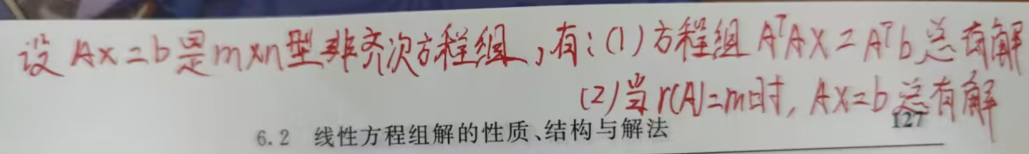 设 Ax=b 是m×n型非齐次方程组,有:(1)方程组 AᵀAX=Aᵀb 总有解
(2)当r(A)=m时, AX=b 总有解
6.2 线性方程组解的性质、结构与解法 127